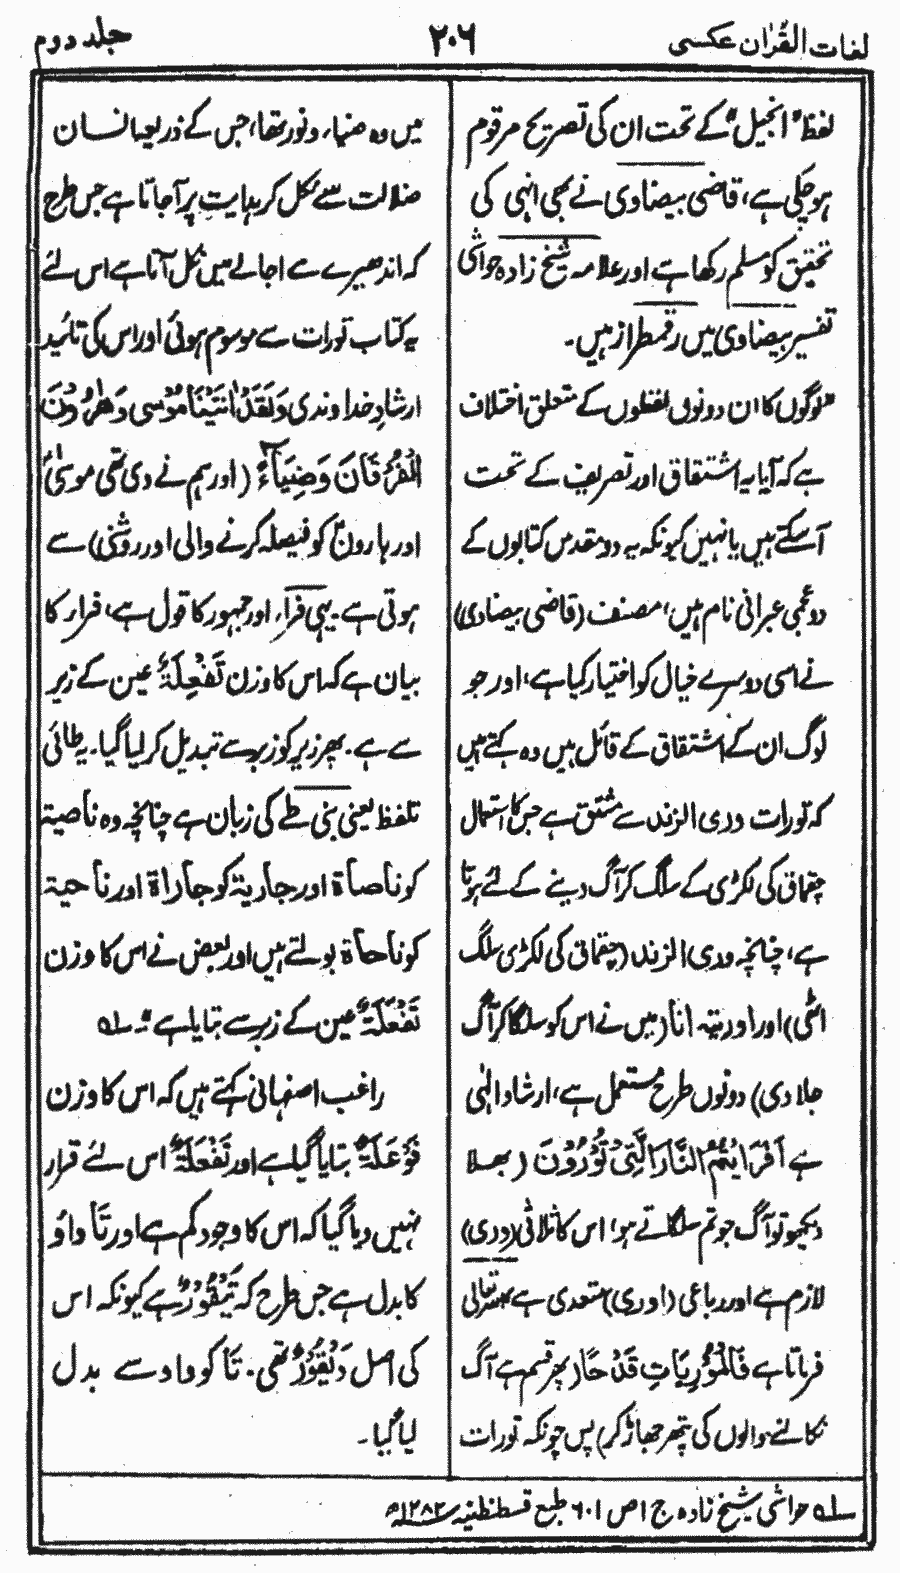 لغات القرٰان عکسی
۲۰۶
جلد دوم
لفظ "انجیل" کے تحت ان کی تصریح مرقوم
ہوچکی ہے، قاضی بیضاوی نے بھی انہی کی
تحقیق کو مسلم رکھا ہے اور علامہ شیخ زادہ حواشی
تفسیر بیضاوی میں رقمطراز ہیں۔
"لوگوں کا ان دونوں لفظوں کے متعلق اختلاف
ہے کہ آیا یہ اشتقاق اور تصریف کے تحت
آسکتے ہیں یا نہیں کیونکہ یہ دو مقدس کتابوں کے
دو عجمی عبرانی نام ہیں، مصنف (قاضی بیضاوی)
نے اسی دوسرے خیال کو اختیار کیا ہے، اور جو
لوگ ان کے اشتقاق کے قائل ہیں وہ کہتے ہیں
کہ تورات وری الزند سے مشتق ہے جس کا استعمال
چقماق کی لکڑی کے سلگ کر آگ دینے کے لئے ہوتا
ہے، چنانچہ وری الزند (چقماق کی لکڑی سلگ
اٹھی) اور اوریتہ انا (میں نے اس کو سلگا کر آگ
جلا دی) دونوں طرح مستعمل ہے، ارشاد الٰہی
ہے اَفَرَاَیْتُمُ النَّارَ الَّتِیْ تُوْرُوْنَ (بھلا
دیکھو تو آگ جو تم سلگاتے ہو، اس کا ثلاثی (وری)
لازم ہے اور رباعی (اوری) متعدی ہے اللہ تعالی
فرماتا ہے فَالْمُوْرِیَاتِ قَدْحًا (پھر قسم ہے آگ
نکالنے والوں کی پتھر جھاڑ کر) پس چونکہ تورات
میں وہ ضیاء و نور تھا، جس کے ذریعہ انسان
ضلالت سے نکل کر ہدایت پر آجاتا ہے جس طرح
کہ اندھیرے سے اجالے میں نکل آتا ہے اس لئے
یہ کتاب تورات سے موسوم ہوئی اور اس کی تائید
ارشادِ خداوندی وَلَقَدْ اٰتَیْنَا مُوْسٰی وَھٰرُوْنَ
الْفُرْقَانَ وَضِیَاءً (اور ہم نے دی تھی موسیٰ
اور ہارون کو فیصلہ کرنے والی اور روشنی) سے
ہوتی ہے۔ یہی فراء اور جمہور کا قول ہے، فرار کا
بیان ہے کہ اس کا وزن تَفْعِلَۃٌ عین کے زیر
سے ہے۔ پھر زیر کو زبر سے تبدیل کر لیا گیا۔ یہ طائی
تلفظ یعنی بنی طے کی زبان ہے چنانچہ وہ ناصیۃ
کو ناصاۃ اور جاریۃ کو جاراۃ اور ناحیۃ
کو ناحاۃ بولتے ہیں اور بعض نے اس کا وزن
تَفْعَلَۃٌ عین کے زبر سے بتایا ہے"۔ لہ
راغب اصفہانی کہتے ہیں کہ اس کا وزن
فَوْعَلَۃٌ بتایا گیا ہے اور تَفْعَلَۃٌ اس لئے قرار
نہیں دیا گیا کہ اس کا وجود کم ہے اور تَا واوٗ
کا بدل ہے جس طرح کہ تَیْقُوْرٌ ہے کیونکہ اس
کی اصل وَیْقُوْرٌ تھی۔ تَا کو واو سے بدل
لیا گیا۔
لہ حواشی شیخ زادہ ج ا ص ۶۰۱ طبع قسطنطنیہ ۱۲۸۲ھ